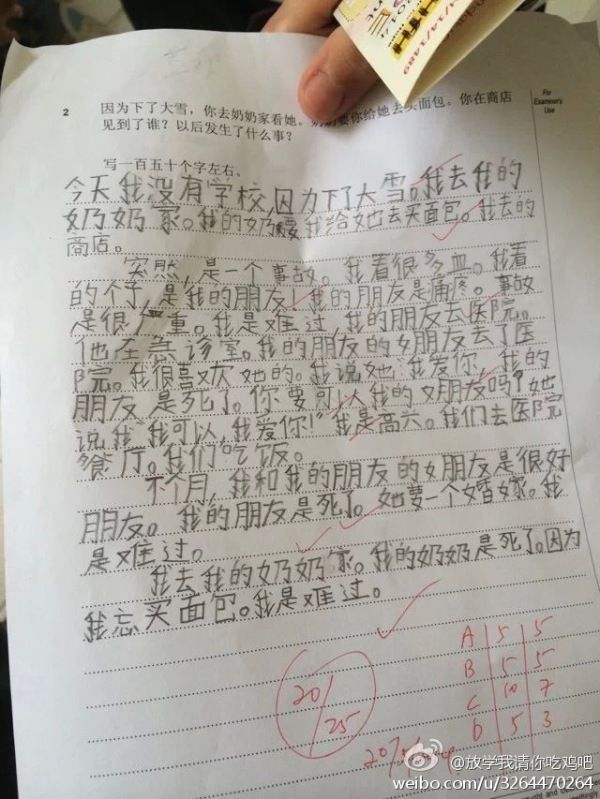 For
Examiner's
Use
2 因为下了大雪，你去奶奶家看她。奶奶要你给她去买面包。你在商店
见到了谁？以后发生了什么事？
写一百五十个字左右。
今天我没有学校，因为下了大雪。我去我的
奶奶家。我的奶要我给她去买面包。我去的
商店。
突然，是一个事故。我看很多血。我看
的个子，是我的朋友！我的朋友是痛疼。事故
是很严重。我是难过，我的朋友去医院。
他在急诊室。我的朋友的女朋友去了医
院。我很喜欢她的。我说她："我爱你，我的
朋友是死了。你要可以我的女朋友吗？"她
说我"我可以，我爱你！"我是高六。我们去医院
餐厅。我们吃饭。
下个月，我和我的朋友的女朋友是很好
朋友。我的朋友是死了。她要一个婚嫁。我
是难过。
我去我的奶奶家。我的奶奶是死了。因为
我忘买面包。我是难过。
A 5 5
B 5 5
C 10 7
D 5 3
20/25
@放学我请你吃鸡吧
weibo.com/u/3264470264